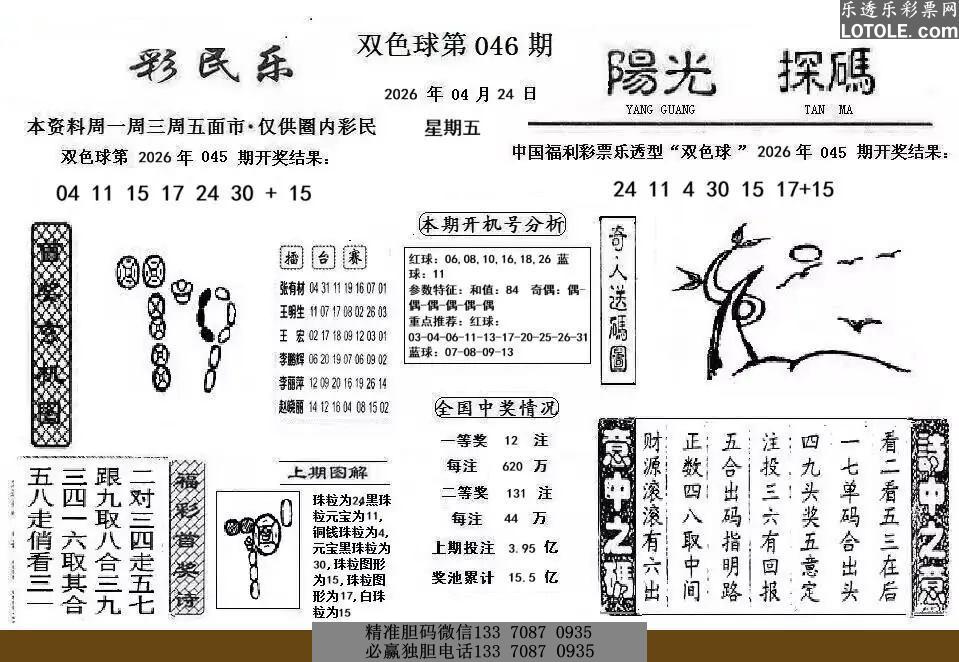 乐透乐彩票网
LOTOLE.com
彩民乐
双色球第 046 期
陽光 探碼
YANG GUANG TAN MA
2026 年 04 月 24 日
本资料周一周三周五面市·仅供圈内彩民
星期五
双色球第 2026 年 045 期开奖结果：
中国福利彩票乐透型“双色球 ” 2026 年 045 期开奖结果：
04 11 15 17 24 30 + 15
24 11 4 30 15 17+15
擂台赛
张有材 04 31 11 19 16 07 01
王明生 11 07 17 08 02 26 03
王 宏 02 17 18 09 12 03 01
李鹏辉 06 20 19 07 06 09 02
李丽萍 12 09 20 16 19 26 14
赵晓丽 14 12 16 04 08 15 02
本期开机号分析
红球：06,08,10,16,18,26 蓝
球：11
参数特征：和值：84 奇偶：偶-
偶-偶-偶-偶-偶
重点推荐：红球：
03-04-06-11-13-17-20-25-26-31
蓝球：07-08-09-13
奇人送碼圖
全国中奖情况
一等奖 12 注
每注 620 万
二等奖 131 注
每注 44 万
上期投注 3.95 亿
奖池累计 15.5 亿
二对三四走五七
跟九取八合三九
三四一六取其合
五八走俏看三一
福彩首奖诗
上期图解
珠粒为24黑珠
粒元宝为11,
铜钱珠粒为4,
元宝黑珠粒为
30,珠粒图形
为15,珠粒图
形为17,白珠
粒为15
看二看五三在后
一七单码合出头
四九头奖五意定
注投三六有回报
五合出码指明路
正数四八取中间
财源滚滚有六出
精准胆码微信133 7087 0935
必赢独胆电话133 7087 0935